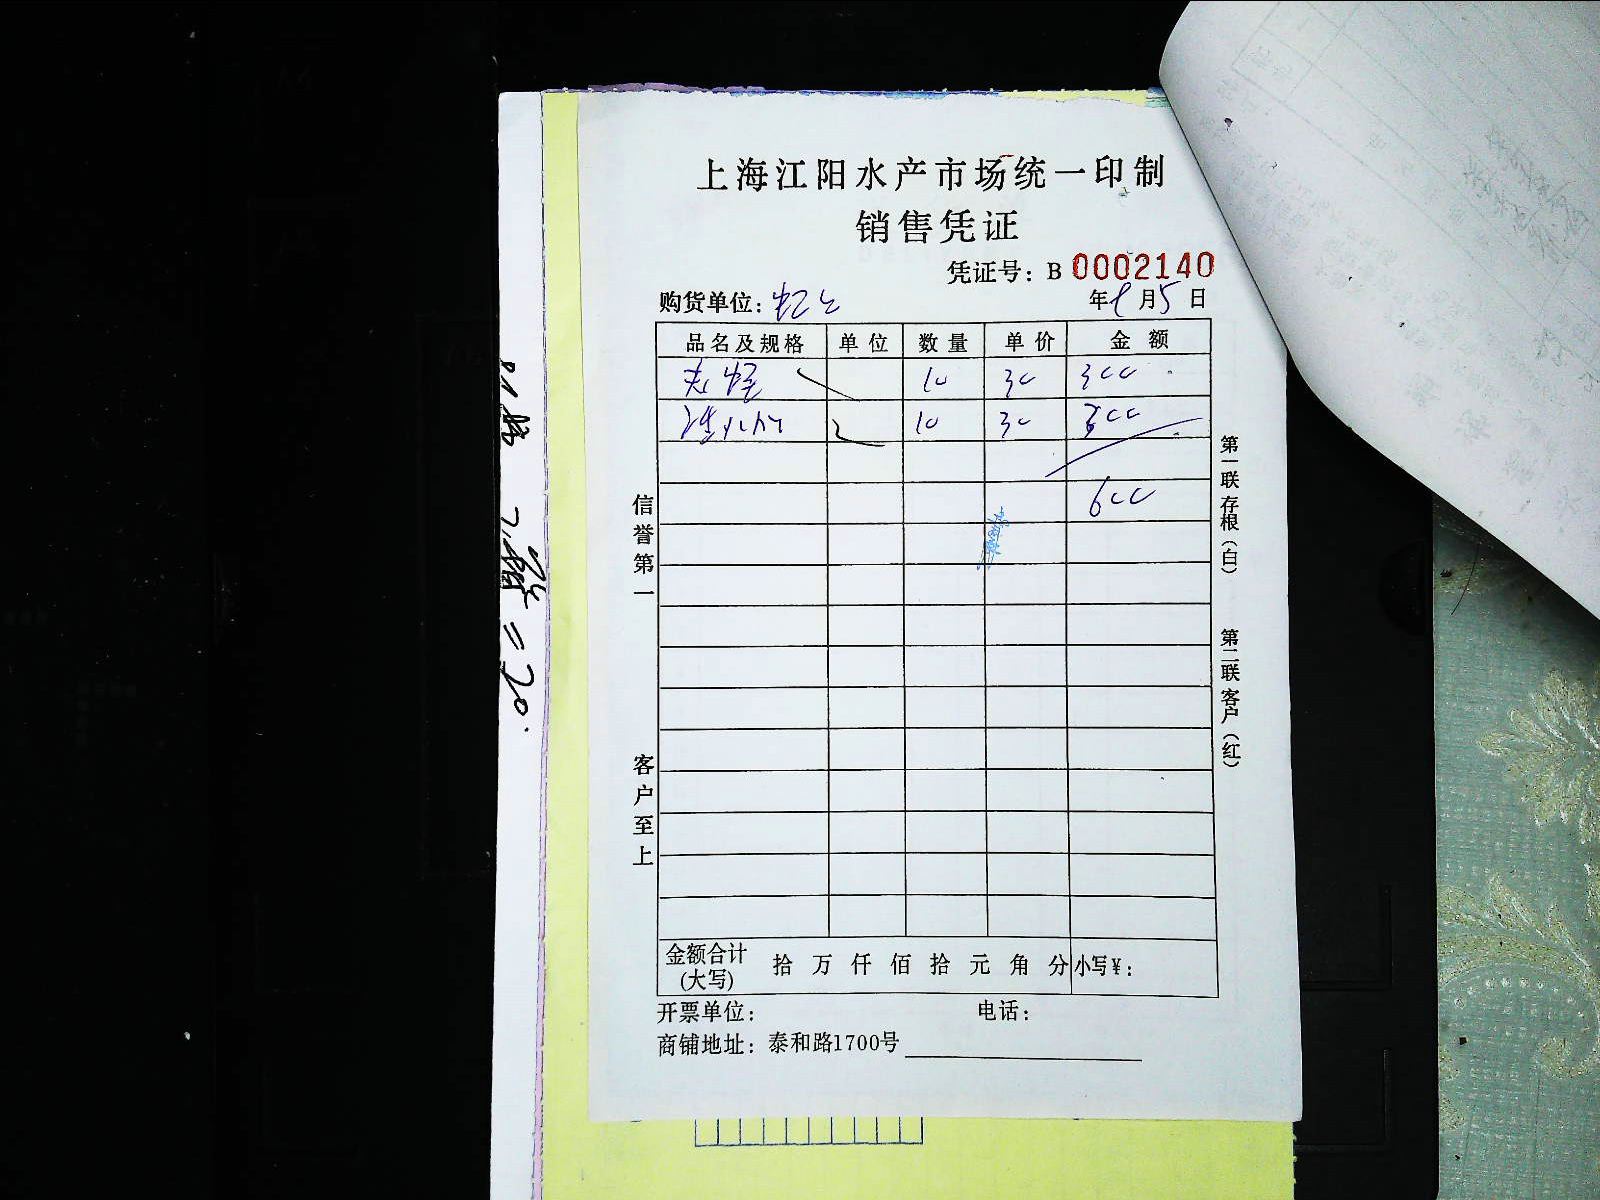 上海江阳水产市场统一印制
销售凭证
凭证号：B 0002140
购货单位：
年 月5日
品名及规格 单位 数量 单价 金额
10 30 300
10 30 300
600
信誉第一
客户至上
第一联存根（白）
第二联客户（红）
金额合计(大写) 拾万仟佰拾元角分 小写￥：
开票单位： 电话：
商铺地址：泰和路1700号
=20.